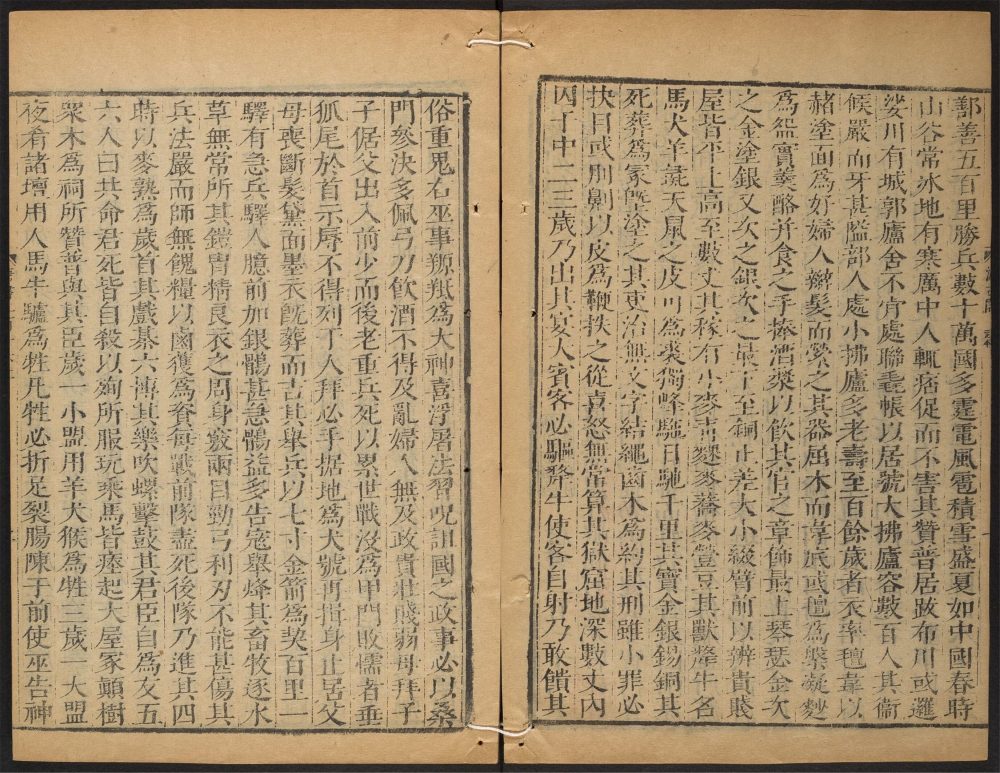 鄯善五百里勝兵數十萬國多霆電風雹積雪盛夏如中國春時
山谷常冰地有寒厲中人輒痞促而不害其贊普居跋布川或邏
娑川有城郭廬舍不肯處聯毳帳以居號大拂廬容數百人其衛
候嚴而牙甚隘部人處小拂廬多老壽至百餘歲者衣率氊韋以
赭塗面爲好婦人辮髮而縈之其器屈木而韋底或氊爲槃凝麨
爲盌實羹酪并食之手捧酒漿以飲其官之章飾最上瑟瑟金次
之金塗銀又次之銀次之最下至銅止差大小綴臂前以辨貴賤
屋皆平上高至數丈其稼有小麥青稞麥蕎麥登豆其獸犛牛名
馬犬羊彘天鼠之皮可爲裘獨峰駞日馳千里其寶金銀錫銅其
死葬爲冢塈塗之其吏治無文字結繩齒木爲約其刑雖小罪必
抉目或刖劓以皮爲鞭抶之從喜怒無常算其獄窟地深數丈内
囚于中二三歲乃出其宴大賓客必驅犛牛使客自射乃敢饋其
俗重鬼右巫事羱羝爲大神喜浮屠法習呪詛國之政事必以桑
門參決多佩弓刀飲酒不得及亂婦人無及政貴壯賤弱母拜子
子倨父出入前少而後老重兵死以累世戰沒爲甲門敗懦者垂
狐尾於首示辱不得列于人拜必手据地爲犬號再揖身止居父
母喪斷髮黛面墨衣旣葬而吉其舉兵以七寸金箭爲契百里一
驛有急兵驛人臆前加銀鶻甚急鶻益多告寇舉烽其畜牧逐水
草無常所其鎧冑精良衣之周身竅兩目勁弓利刃不能甚傷其
兵法嚴而師無餽糧以鹵獲爲資每戰前隊盡死後隊乃進其四
時以麥熟爲歲首其戲棊六博其樂吹螺擊鼓其君臣自爲友五
六人曰共命君死皆自殺以殉所服玩乘馬皆瘞起大屋冢顚樹
衆木爲祠所贊普與其臣歲一小盟用羊犬猴爲牲三歲一大盟
夜肴諸壇用人馬牛驢爲牲凡牲必折足裂腸陳于前使巫告神